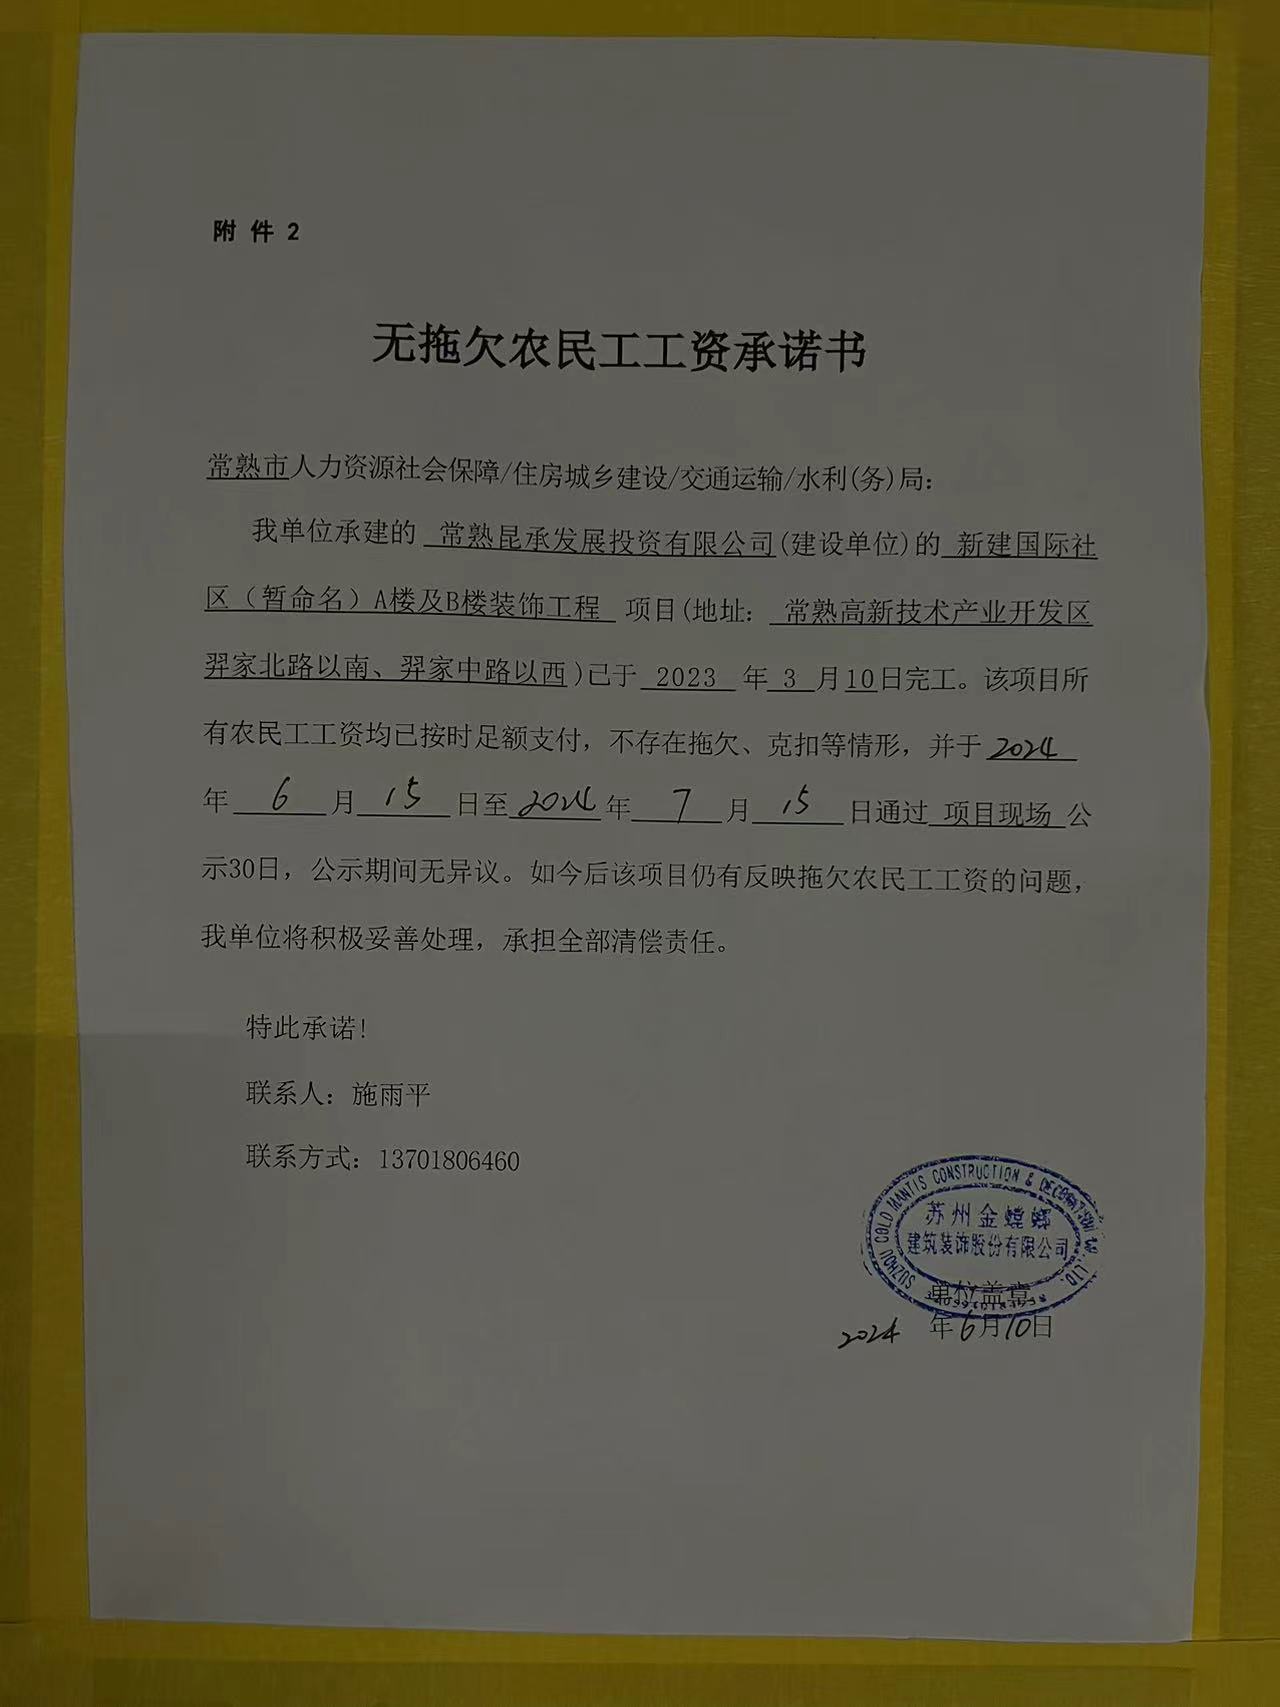 附 件 2
无拖欠农民工工资承诺书
常熟市人力资源社会保障/住房城乡建设/交通运输/水利(务)局：
我单位承建的 常熟昆承发展投资有限公司(建设单位)的 新建国际社
区（暂命名）A楼及B楼装饰工程 项目(地址： 常熟高新技术产业开发区
羿家北路以南、羿家中路以西)已于 2023 年 3 月10日完工。该项目所
有农民工工资均已按时足额支付，不存在拖欠、克扣等情形，并于 2024
年 6 月 15 日至 2024 年 7 月 15 日通过 项目现场 公
示30日，公示期间无异议。如今后该项目仍有反映拖欠农民工工资的问题，
我单位将积极妥善处理，承担全部清偿责任。
特此承诺!
联系人：施雨平
联系方式：13701806460
SUZHOU GOLD MANTIS CONSTRUCTION & DECORATION CO., LTD.
苏州金螳螂
建筑装饰股份有限公司
单位盖章
2024 年 6 月 10 日